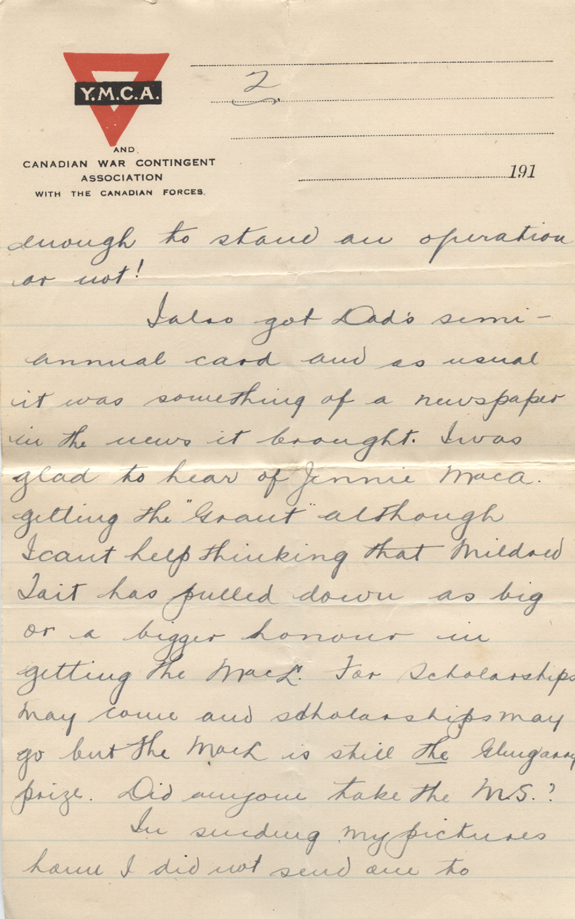 Y.M.C.A.
AND
CANADIAN WAR CONTINGENT
ASSOCIATION
WITH THE CANADIAN FORCES.
2
191
enough to stand an operation
or not!
I also got Dad's semi-
annual card and as usual
it was something of a newspaper
in the news it brought. I was
glad to hear of Jennie MacA.
getting the "Grant" although
I cant help thinking that Mildred
Tait has pulled down as big
or a bigger honour in
getting the MacL. For Scholarships
may come and scholarships may
go but the MacL is still the Glengarry
prize. Did anyone take the M.S.?
In sending my pictures
home I did not send one to